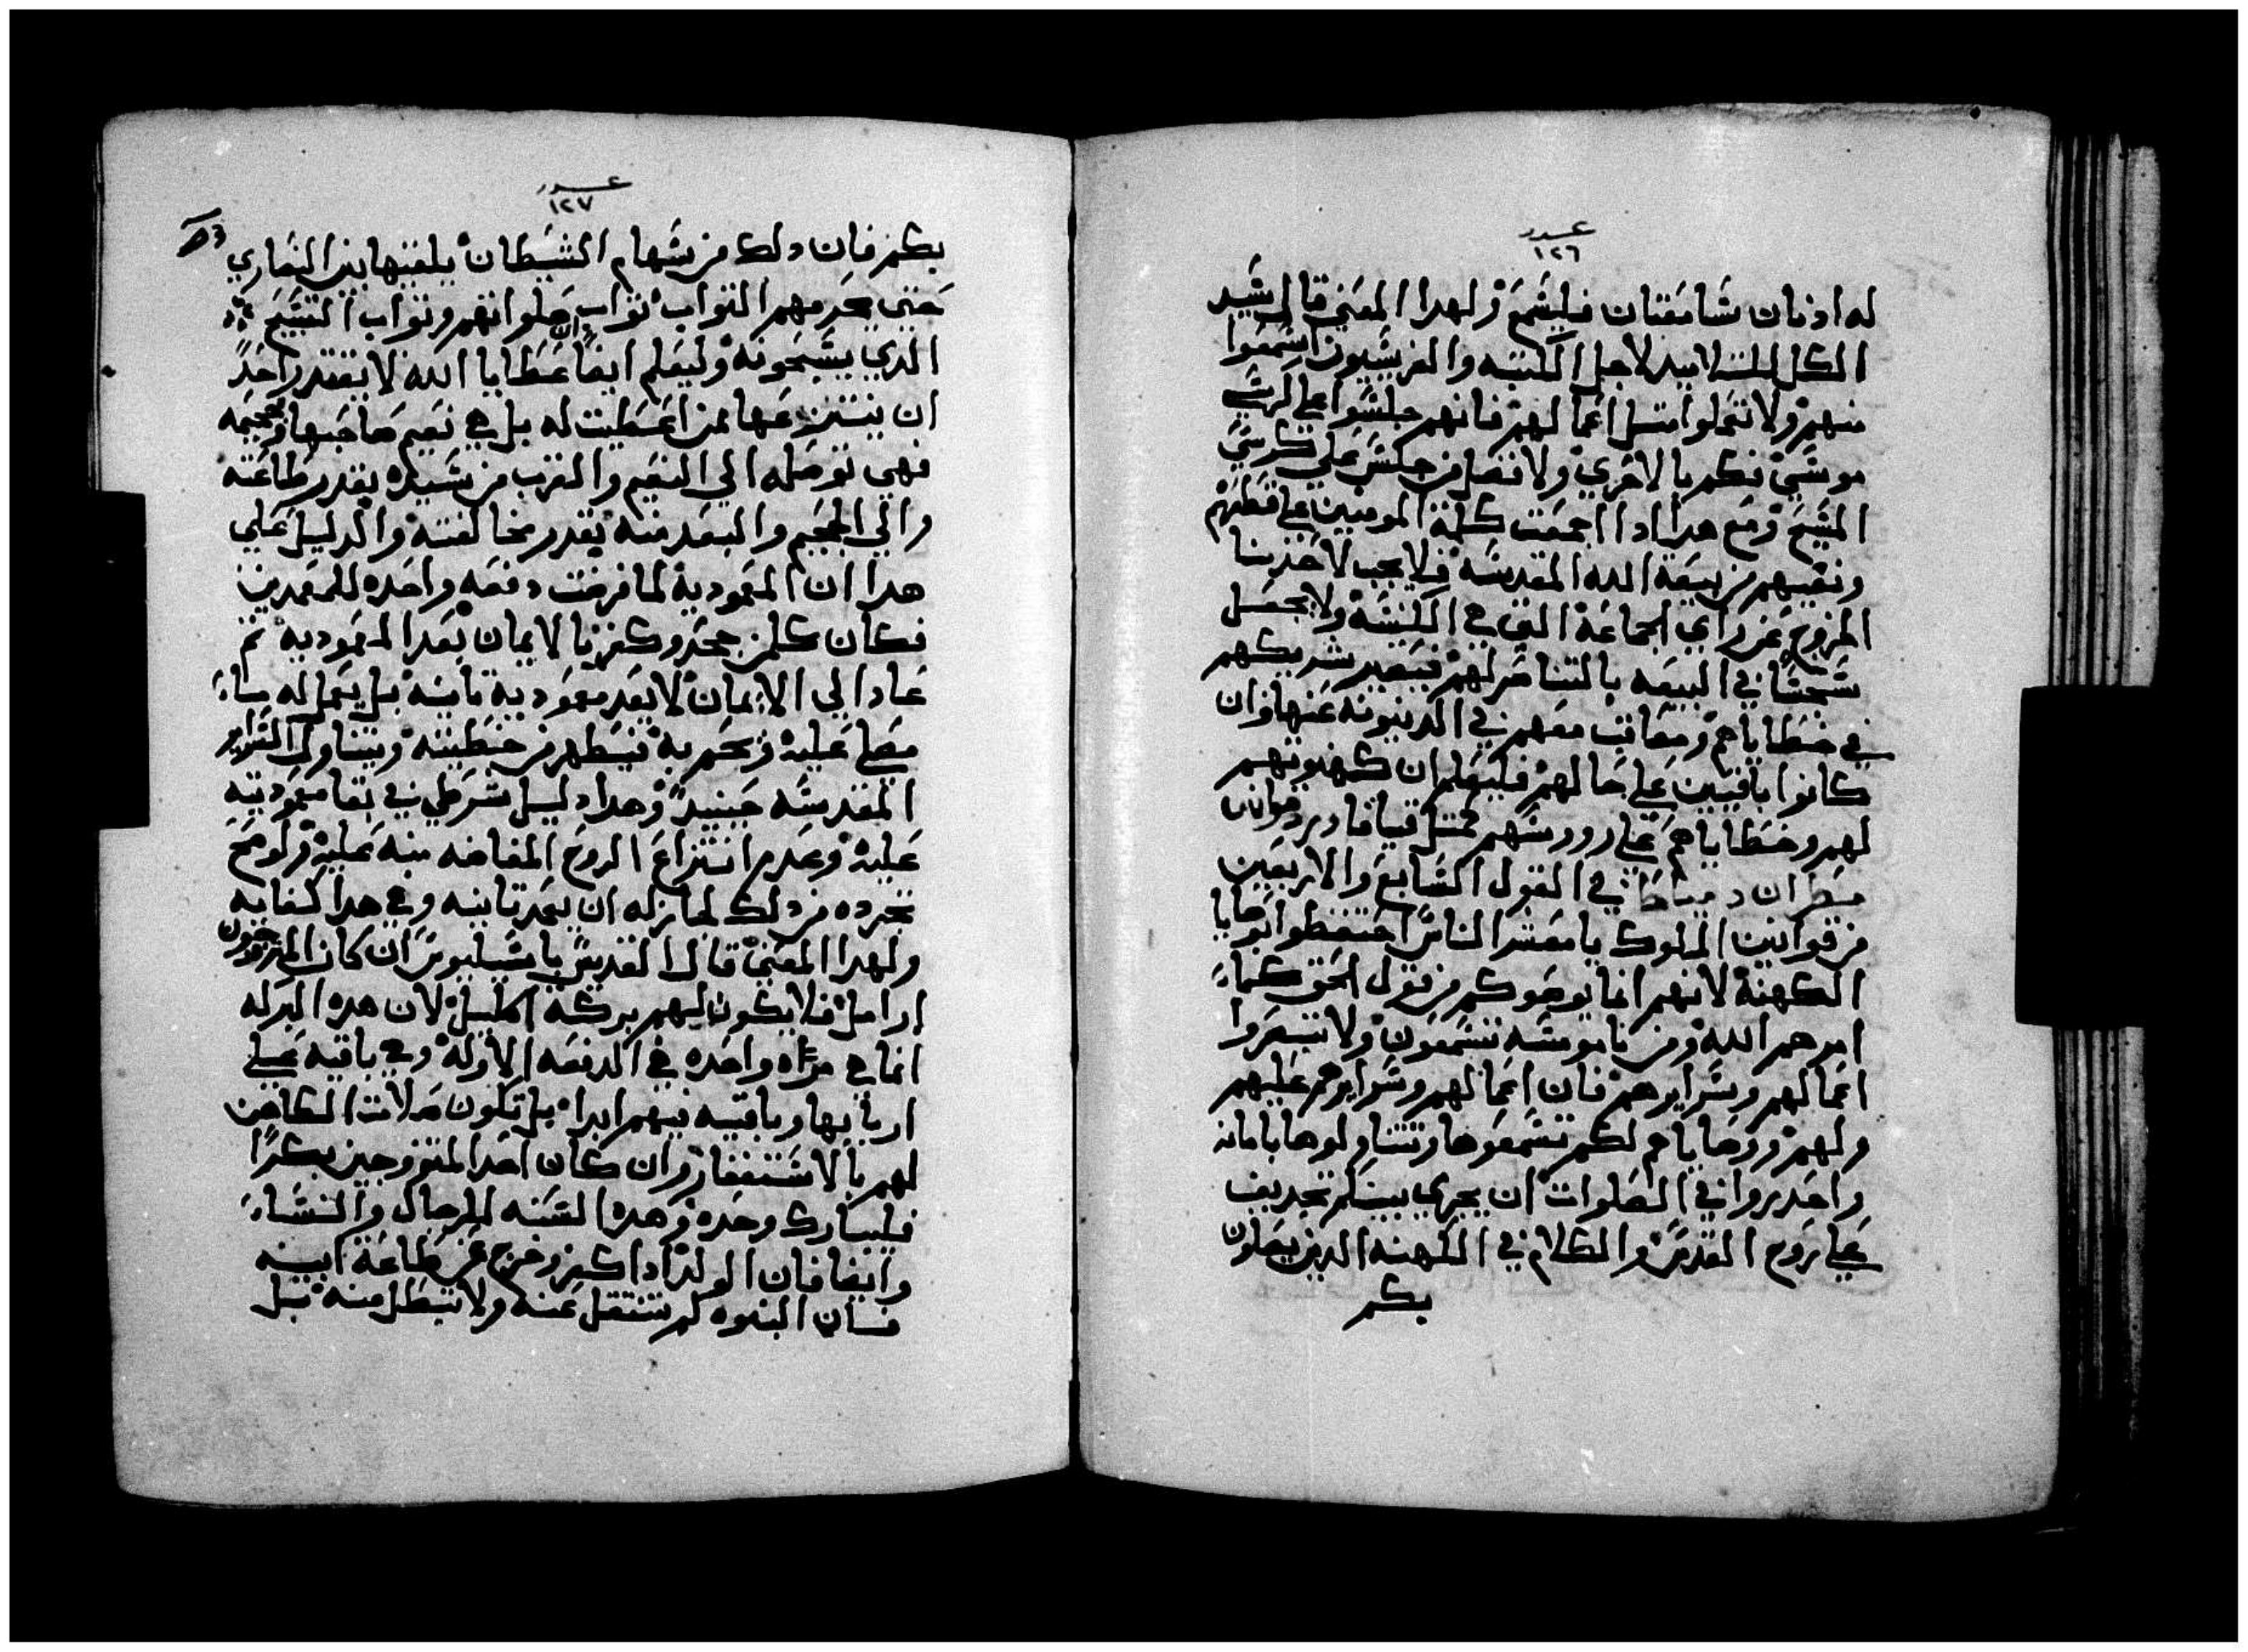 عدد
١٢٦
له ادنان سَامعَتان فليسْمَعْ ولهدا المعَني قال سَيد
الكل للتلاميد لاجل الكتبه والفريسَيون اسَمعَوا
منهم ولا تعَملوا متل اعَمالهم فانهم جلسَوا علي كرسَي
موسَيْ فكم بالاحَريْ ولا نتصل من جلسَ عَلي كرسَي
المسَيحَ ومَع هدا ادا اجمعَت كلمة المومنين علي قطعَهم
ونفيهم من بيعَة الله المقدسَه فلا يجب لاحَد منا
الخروج عَن راي الجماعَة التي هي الكنيسَه ولا يجعَل
سَجسًا في البيعَه بالتناصَر لهم فيصَير شريكهم
في خطاياهم ومعَاقب معَهم في الدينونه عَنها وان
كانوا باقيين علي حالهم فليعَلم ان كهنوتهم
لهم وخطاياهم علي رووسَهم كمتل قيافا
مطران دمياط في القول السَابع والاربعَين
من قوانين الملوك يا معَشر الناسَ احتفظوا بوصَايا
الكهنة لانهم انما يوصَوكم من قول الحَق كماَ
امرهم الله ومن ناموسَه تسَمعَونْ ولا تبصَروا
اعَمالهم وسَرايرهمْ فان اعَمالهم وسَرايرهم عَليهم
ولهمْ ووصَاياهم لكم تسَمعَوها وتتناولوها بامانه
واحَدروا في الصَلوات ان يجري بينكم تجديف
علي روح القدسَ والكلام في الكهنه الدين يصَلون
بكم
عدد
١٢٧
بكم فان دلك من سَهام الشيطان يلقيها بين النصَاري
حَتي يحَرمهم التواب تواب صَلواتهم وتواب التسَبيحَ
الدي يسَبحَونه وليعَلم ايضاً ان عَطايا الله لا يقتدر احَدً
ان ينتزعَها ممن اعَطيت له بل هي نعَيم صَاحَبها وجحَيمه
فهي توصَله الي النعَيم والقرب من سَيده بقدر طاعَته
والي الجحَيم والبعَد منه بقدر مخالفته والدليل عَلي
هدا ان المعَموديه لما فرضَت دفعَه واحَده للمعَمدين
فكان كلمن جحَد وكفر بالايمان بعَد المعَموديه تم
عَاد الي الايمان لا يعَد معَموديه تانيه بل يعَمل له ماءَ
يصَلي عَليه ويحَم به فيتطهر من خطيته ويتناول السَراير
المقدسَه حَينيدً وهدا دليل شرطي في بقا معَموديته
عَليه وعَدم انتزاعَ الروحَ المفاضه منه عَليه ولو صَحَ
تجرده من دلك لجاز له ان يعَمد تانيه وفي هدا كفايه
ولهدا المعَني قال القديسَ باسَيليوسَ ان كان المتزوجون
ارامل فلا يكون لهم بركة اكليل لان هده البركه
انما هي مرًاه واحَده في الدفعَه الاوله وهي باقيه علي
اربابها وباقيه فيهم ابداً بل تكون صَلات الكاهن
لهم بالاسَتغفار وان كان احَد المتزوجين بكراً
فليبارك وحَده وهده السَنه للرجال والنسَاءَ
وايضَا فان الولد ادا كبر وخرج عَن طاعَة ابيه
فان البنوه لم تنتقل عَنه ولا تبطل منه بل